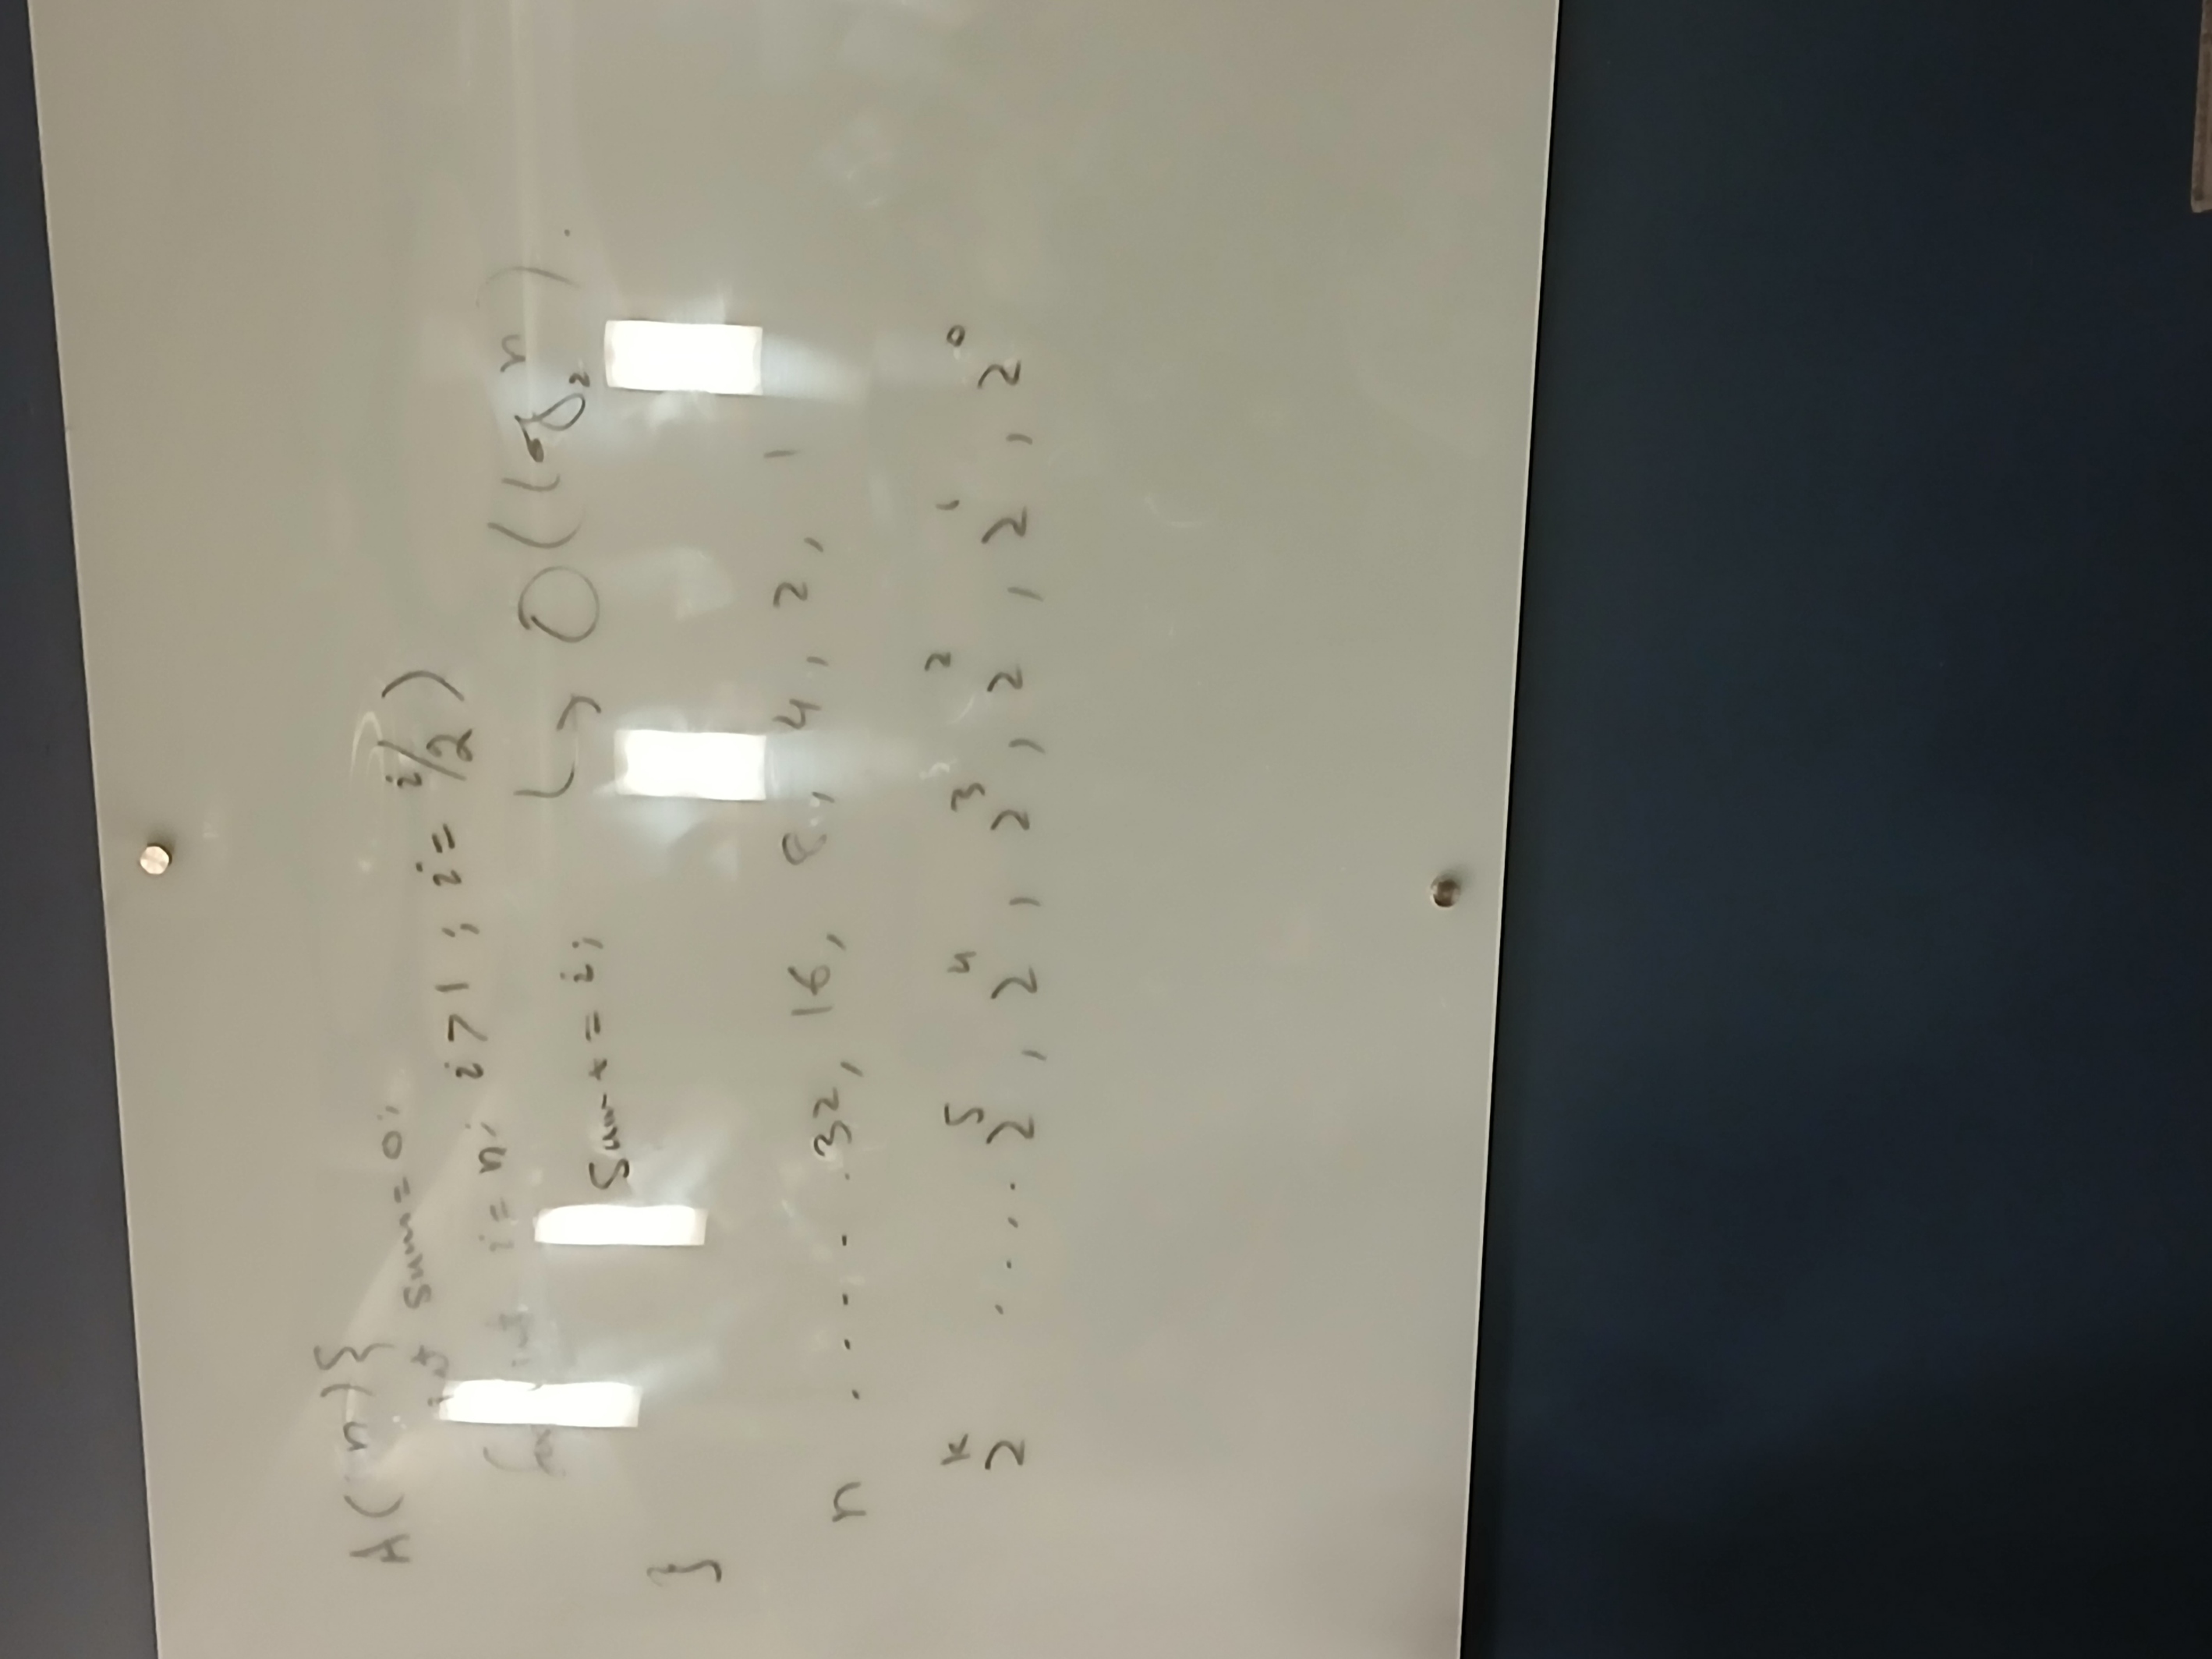 A( n){
int sum = 0;
for( int i = n; i > 1 ; i = i/2 )
sum + = i;
↳ O( log₂ⁿ ) .
}
n . . . . . . 32, 16, 8, 4, 2, 1
2ᵏ . . . . . 2⁵, 2⁴, 2³, 2², 2¹, 2⁰